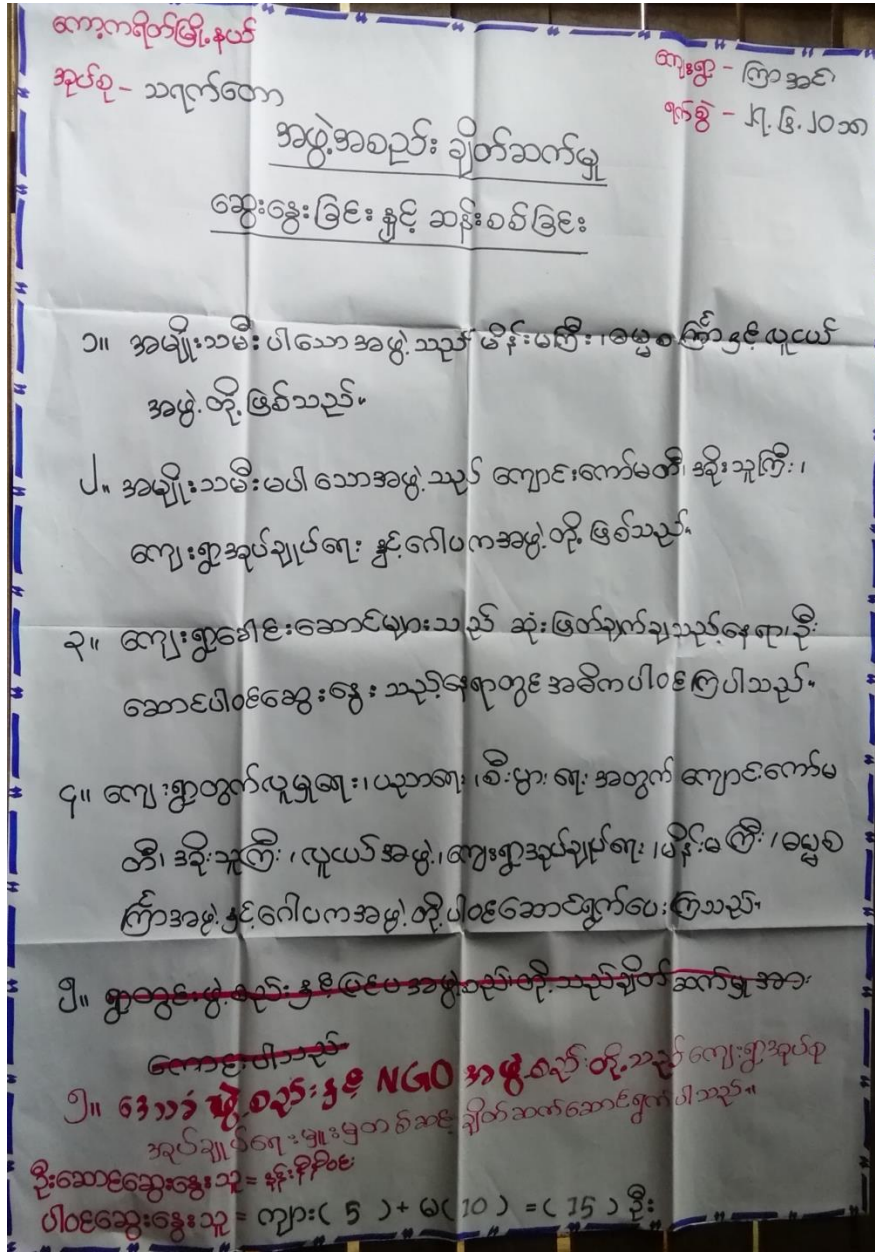 ကော့ကရိတ်မြို့နယ်
ကျေးရွာ - ကြာအင်း
အုပ်စု - သရက်တော
ရက်စွဲ - ၂၇.၆.၂၀၁၈
အဖွဲ့အစည်း ချိတ်ဆက်မှု
ဆွေးနွေးခြင်းနှင့် ဆန်းစစ်ခြင်း
၁။ အမျိုးသမီးပါသောအဖွဲ့သည် မိန်းမကြီး၊ ဓမ္မစင်္ကြာနှင့် လူငယ်
အဖွဲ့တို့ဖြစ်သည်။
၂။ အမျိုးသမီးမပါသောအဖွဲ့သည် ကျောင်းကော်မတီ၊ ဒခိုးသူကြီး၊
ကျေးရွာအုပ်ချုပ်ရေး နှင့်ဂေါပကအဖွဲ့တို့ဖြစ်သည်။
၃။ ကျေးရွာခေါင်းဆောင်များသည် ဆုံးဖြတ်ချက်ချသည့်နေရာ၊ ဦး
ဆောင်ပါဝင်ဆွေးနွေးသည့်နေရာတွင် အဓိကပါဝင်ကြပါသည်။
၄။ ကျေးရွာတွက်လူမှုရေး၊ ပညာရေး၊ စီးပွားရေးအတွက် ကျောင်းကော်မ
တီ၊ ဒခိုးသူကြီး၊ လူငယ်အဖွဲ့၊ ကျေးရွာအုပ်ချုပ်ရေး၊ မိန်းမကြီး၊ ဓမ္မစ
င်္ကြာအဖွဲ့နှင့်ဂေါပကအဖွဲ့တို့ပါဝင်ဆောင်ရွက်ပေးကြသည်။
၅။ ရွာတွင်းဖွဲ့စည်းနှင့်ပြင်ပအဖွဲ့စည်းတို့သည်ချိတ်ဆက်မှုအား
ကောင်းပါသည်။
၅။ ဒေသခံဖွဲ့စည်းနှင့် NGO အဖွဲ့စည်းတို့သည် ကျေးရွာအုပ်စု
အုပ်ချုပ်ရေးမှူးမှတစ်ဆင့် ချိတ်ဆက်ဆောင်ရွက်ပါသည်။
ဦးဆောင်ဆွေးနွေးသူ = နန်းနီနီဝင်း
ပါဝင်ဆွေးနွေးသူ = ကျား( 5 ) + မ( 10 ) = ( 15 ) ဦး